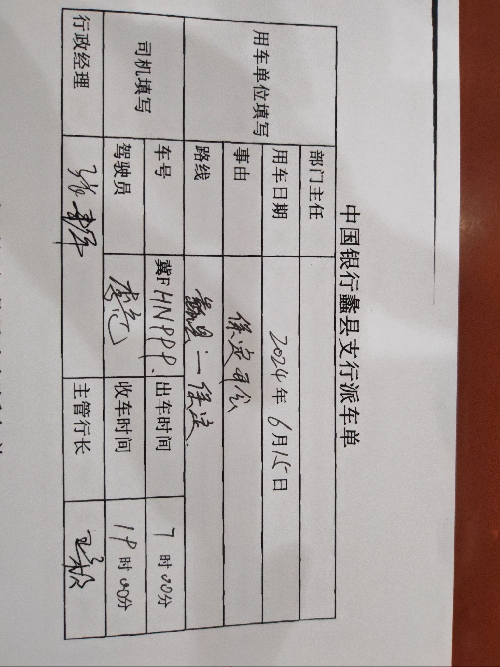 中国银行蠡县支行派车单
用车单位填写 部门主任
用车日期 2024年6月15日
事由 保定开会
路线 蠡县—保定
司机填写 车号 冀F 出车时间 7时00分
驾驶员 收车时间 19时00分
行政经理 主管行长